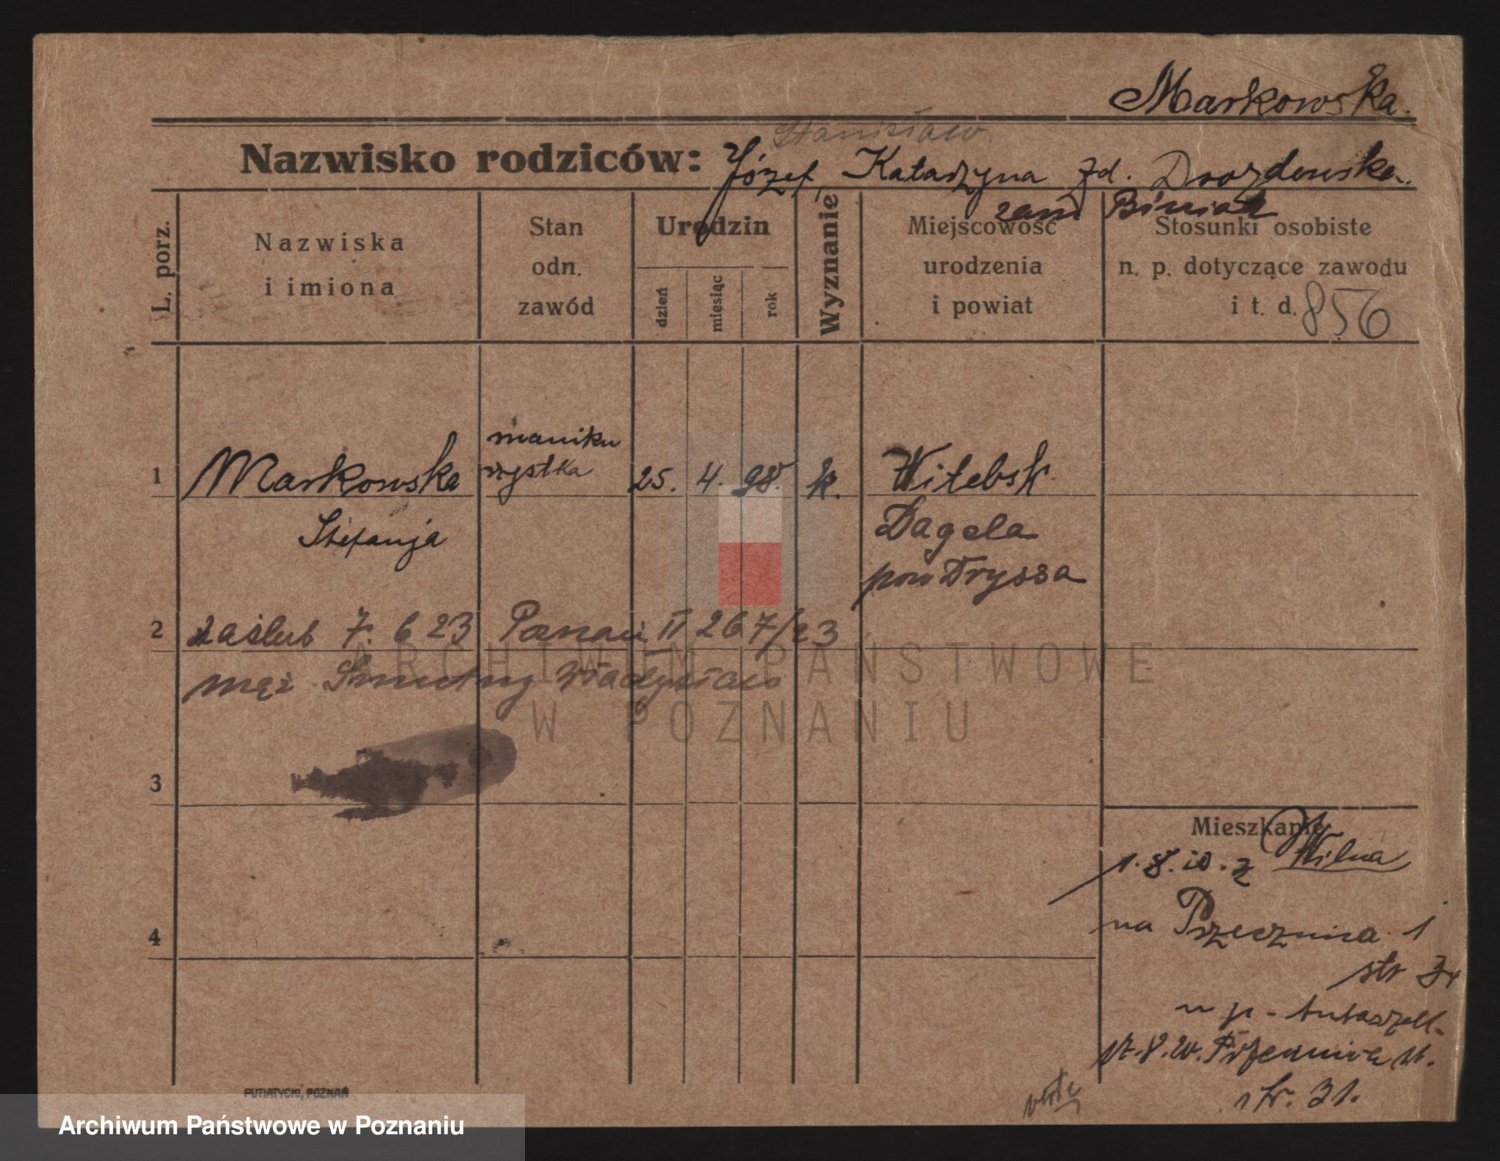 Markowska.
Stanisław.
Nazwisko rodziców: Józef, Katarzyna zd. Drozdowska.
zam Biniak
L. porz.
Nazwiska
i imiona
Stan
odn.
zawód
Urodzin
dzień
miesiąc
rok
Wyznanie
Miejscowość
urodzenia
i powiat
Stosunki osobiste
n. p. dotyczące zawodu
i t. d. 856
1 Markowska
Stefanja
maniku
rzystka
25. 4. 98. k.
Witebsk
Dagela
pow Dryssa
2 zaślub 7. 6 23 Poznań II 267/23
mąż Smutny Władysław
3
4
Mieszkanie
Wilna
1. 8. 20. z
na Przecznica 1
str
u p.
17. 8. 20.
str. 31.
verte
PUTIATYCKI, POZNAŃ
ARCHIWUM PAŃSTWOWE
W POZNANIU
Archiwum Państwowe w Poznaniu